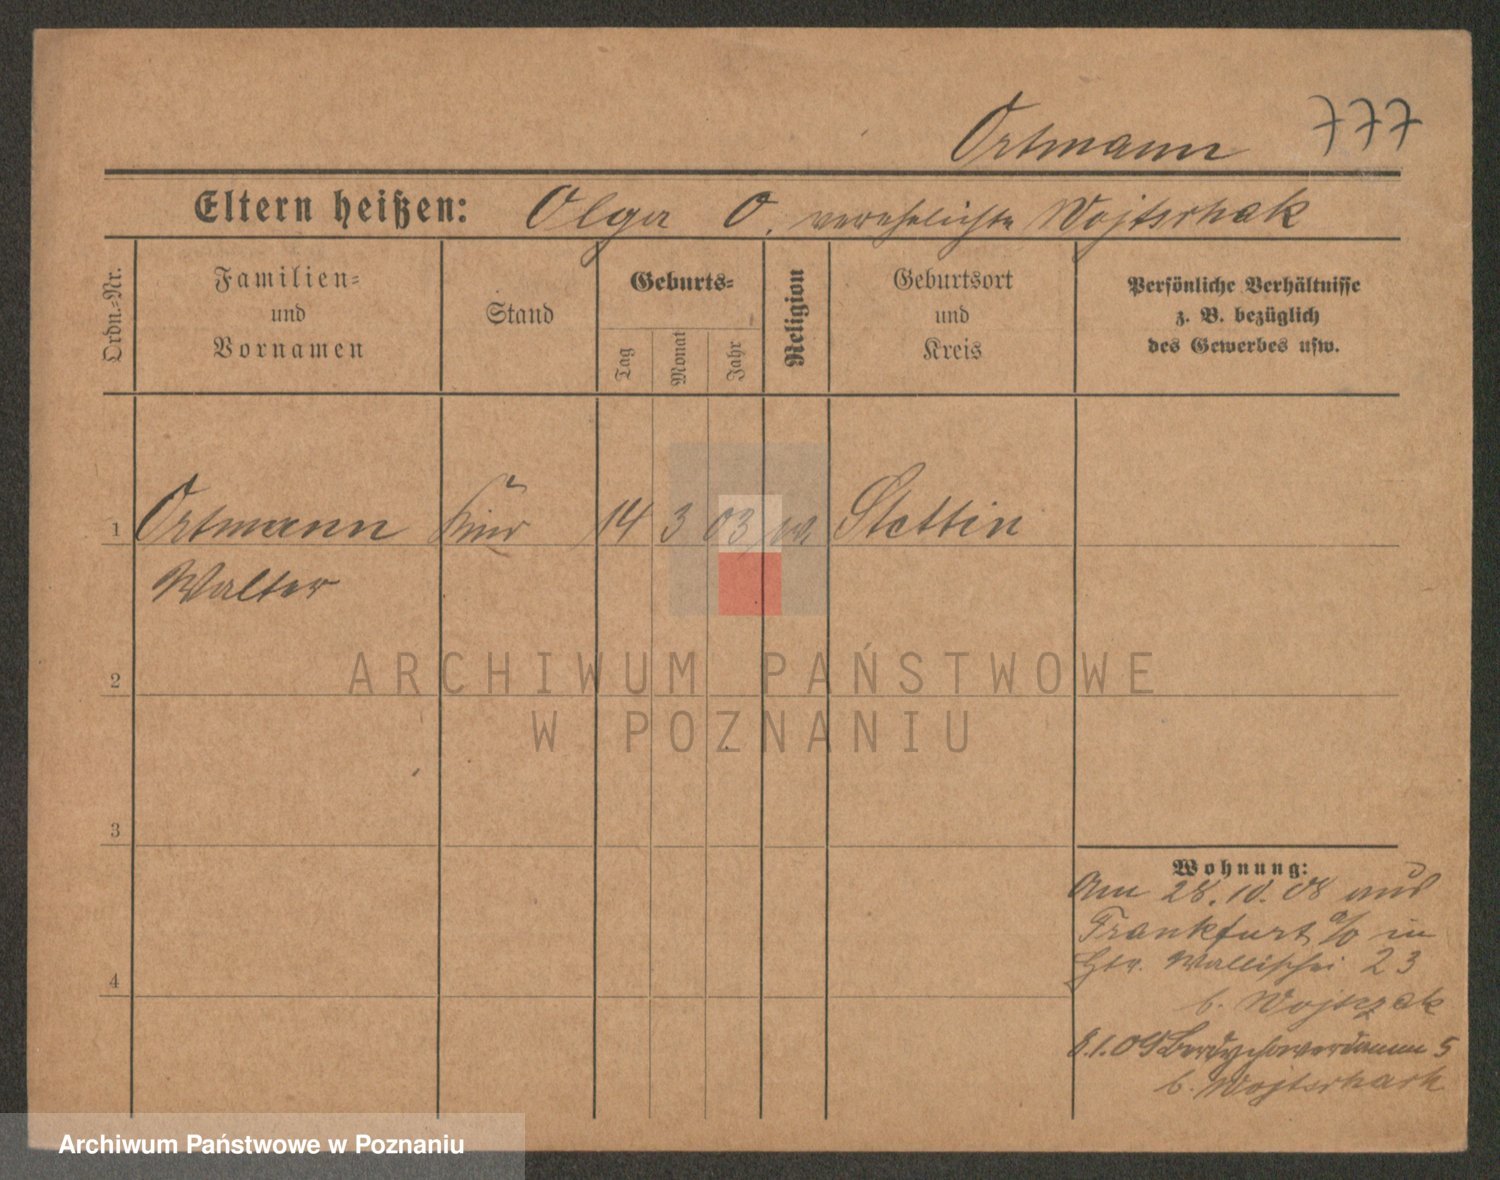 Ortmann 777
Eltern heißen: Olga O. verehelichte Wojtschak
Ordn.-Nr.
Familien- und Vornamen
Stand
Geburts-
Tag
Monat
Jahr
Religion
Geburtsort und Kreis
Persönliche Verhältnisse
z. B. bezüglich
des Gewerbes usw.
1 Ortmann Kind 14 3 03 Stettin
Walter
2
3
4
Wohnung:
Am 28.10.08 aus
Frankfurt a/O in
Wallischei 23
b. Wojtczak
8.1.09 Berdychowerdamm 5
b. Wojtschack
ARCHIWUM PAŃSTWOWE
W POZNANIU
Archiwum Państwowe w Poznaniu